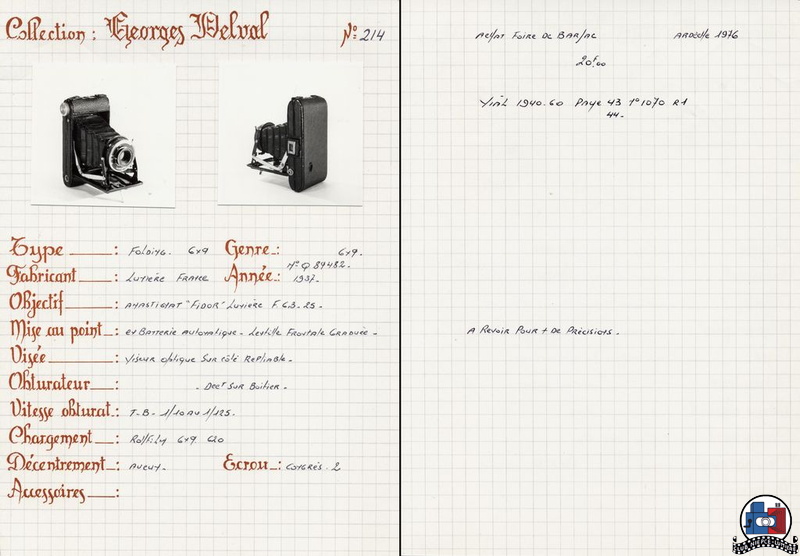 Collection : Georges Delval
Nº 214
Type : Folding. 6x9
Genre : 6x9.
Fabricant : Lumière France
Nº Q 89482.
Année : 1937.
Objectif : Anastigmat "Fidor" Lumière F 6.3 - 25.
Mise au point : en Batterie Automatique - Lentille Frontale Graduée -
Visée : Viseur optique Sur côté Repliable.
Obturateur : - Dect sur Boitier -
Vitesse obturat. : T-B- 1/10 au 1/125.
Chargement : Rollfilm 6x9 620
Décentrement : Aucun.
Ecrou : Congrès. 2
Accessoires :
Achat Foire de Barjac
Ardèche 1976
20F,00
Vial 1940.60 Page 43 nº 1070 R1
44-
A Revoir Pour + De Précisions.